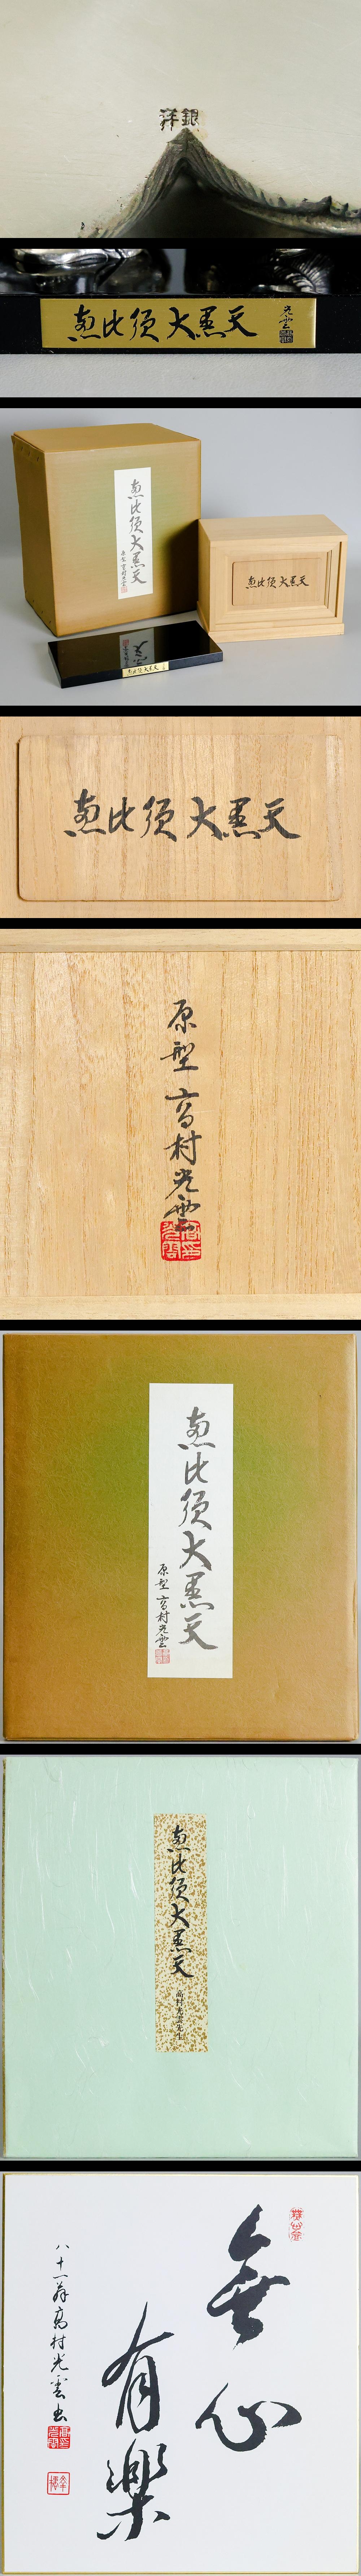 銀
恵比須大黒天
光雲
恵比須大黒天
原型 高村光雲
恵比須大黒天
恵比須大黒天
恵比須大黒天
原型 高村光雲
恵比須大黒天
原型 高村光雲
恵比須大黒天
高村光雲先生
無心
有楽
八十一翁高村光雲